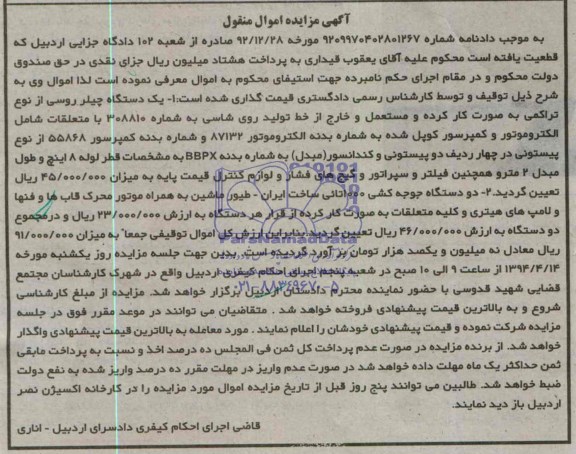 آگهی مزایده اموال منقول
به موجب دادنامه شماره ۹۲۰۹۹۷۰۴۰۲۸۰۱۲۶۷ مورخه ۹۲/۱۲/۲۸ صادره از شعبه ۱۰۲ دادگاه جزایی اردبیل که
قطعیت یافته است محکوم علیه آقای یعقوب قیداری به پرداخت هشتاد میلیون ریال جزای نقدی در حق صندوق
دولت محکوم و در مقام اجرای حکم نامبرده جهت استیفای محکوم به اموال معرفی نموده است لذا اموال وی به
شرح ذیل توقیف و توسط کارشناس رسمی دادگستری قیمت گذاری شده است:۱- یک دستگاه چیلر روسی از نوع
تراکمی به صورت کار کرده و مستعمل و خارج از خط تولید روی شاسی به شماره ۳۰۸۸۱۰ با متعلقات شامل
الکتروموتور و کمپرسور کوپل شده به شماره بدنه الکتروموتور ۸۷۱۳۲ و شماره بدنه کمپرسور ۵۵۸۶۸ از نوع
پیستونی در چهار ردیف دو پیستونی و کندانسور(مبدل) به شماره بدنه BBPX به مشخصات قطر لوله ۸ اینچ و طول
مبدل ۲ مترو همچنین فیلتر و سپراتور و گیج های فشار و لوازم کنترل قیمت پایه به میزان ۴۵/۰۰۰/۰۰۰ ریال
تعیین گردید.۲- دو دستگاه جوجه کشی ۵۰۰۰تائی ساخت ایران - طیور ماشین به همراه موتور محرک قاب ها و فنها
و لامپ های هیتری و کلیه متعلقات به صورت کار کرده از قرار هر دستگاه به ارزش ۲۳/۰۰۰/۰۰۰ ریال و درمجموع
دو دستگاه به ارزش ۴۶/۰۰۰/۰۰۰ ریال تعیین گردید.بنابراین ارزش کل اموال توقیفی جمعا" به میزان ۹۱/۰۰۰/۰۰۰
ریال معادل نه میلیون و یکصد هزار تومان بر آورد گردیده است. بدین جهت جلسه مزایده روز یکشنبه مورخه
۱۳۹۴/۴/۱۴ از ساعت ۹ الی ۱۰ صبح در شعبه پنجم اجرای احکام کیفری اردبیل واقع در شهرک کارشناسان مجتمع
قضایی شهید قدوسی با حضور نماینده محترم دادستان اردبیل برگزار خواهد شد. مزایده از مبلغ کارشناسی
شروع و به بالاترین قیمت پیشنهادی فروخته خواهد شد . متقاضیان می توانند در موعد مقرر فوق در جلسه
مزایده شرکت نموده و قیمت پیشنهادی خودشان را اعلام نمایند . مورد معامله به بالاترین قیمت پیشنهادی واگذار
خواهد شد. از برنده مزایده در صورت عدم پرداخت کل ثمن فی المجلس ده درصد اخذ و نسبت به پرداخت مابقی
ثمن حداکثر یک ماه مهلت داده خواهد شد در صورت عدم واریز در مهلت مقرر ده درصد واریز شده به نفع دولت
ضبط خواهد شد. طالبین می توانند پنج روز قبل از تاریخ مزایده اموال مورد مزایده را در کارخانه اکسیژن نصر
اردبیل باز دید نمایند.
قاضی اجرای احکام کیفری دادسرای اردبیل - اناری
ParsNamadData
۰۲۱-۸۸۳۴۹۶۷۰-۵